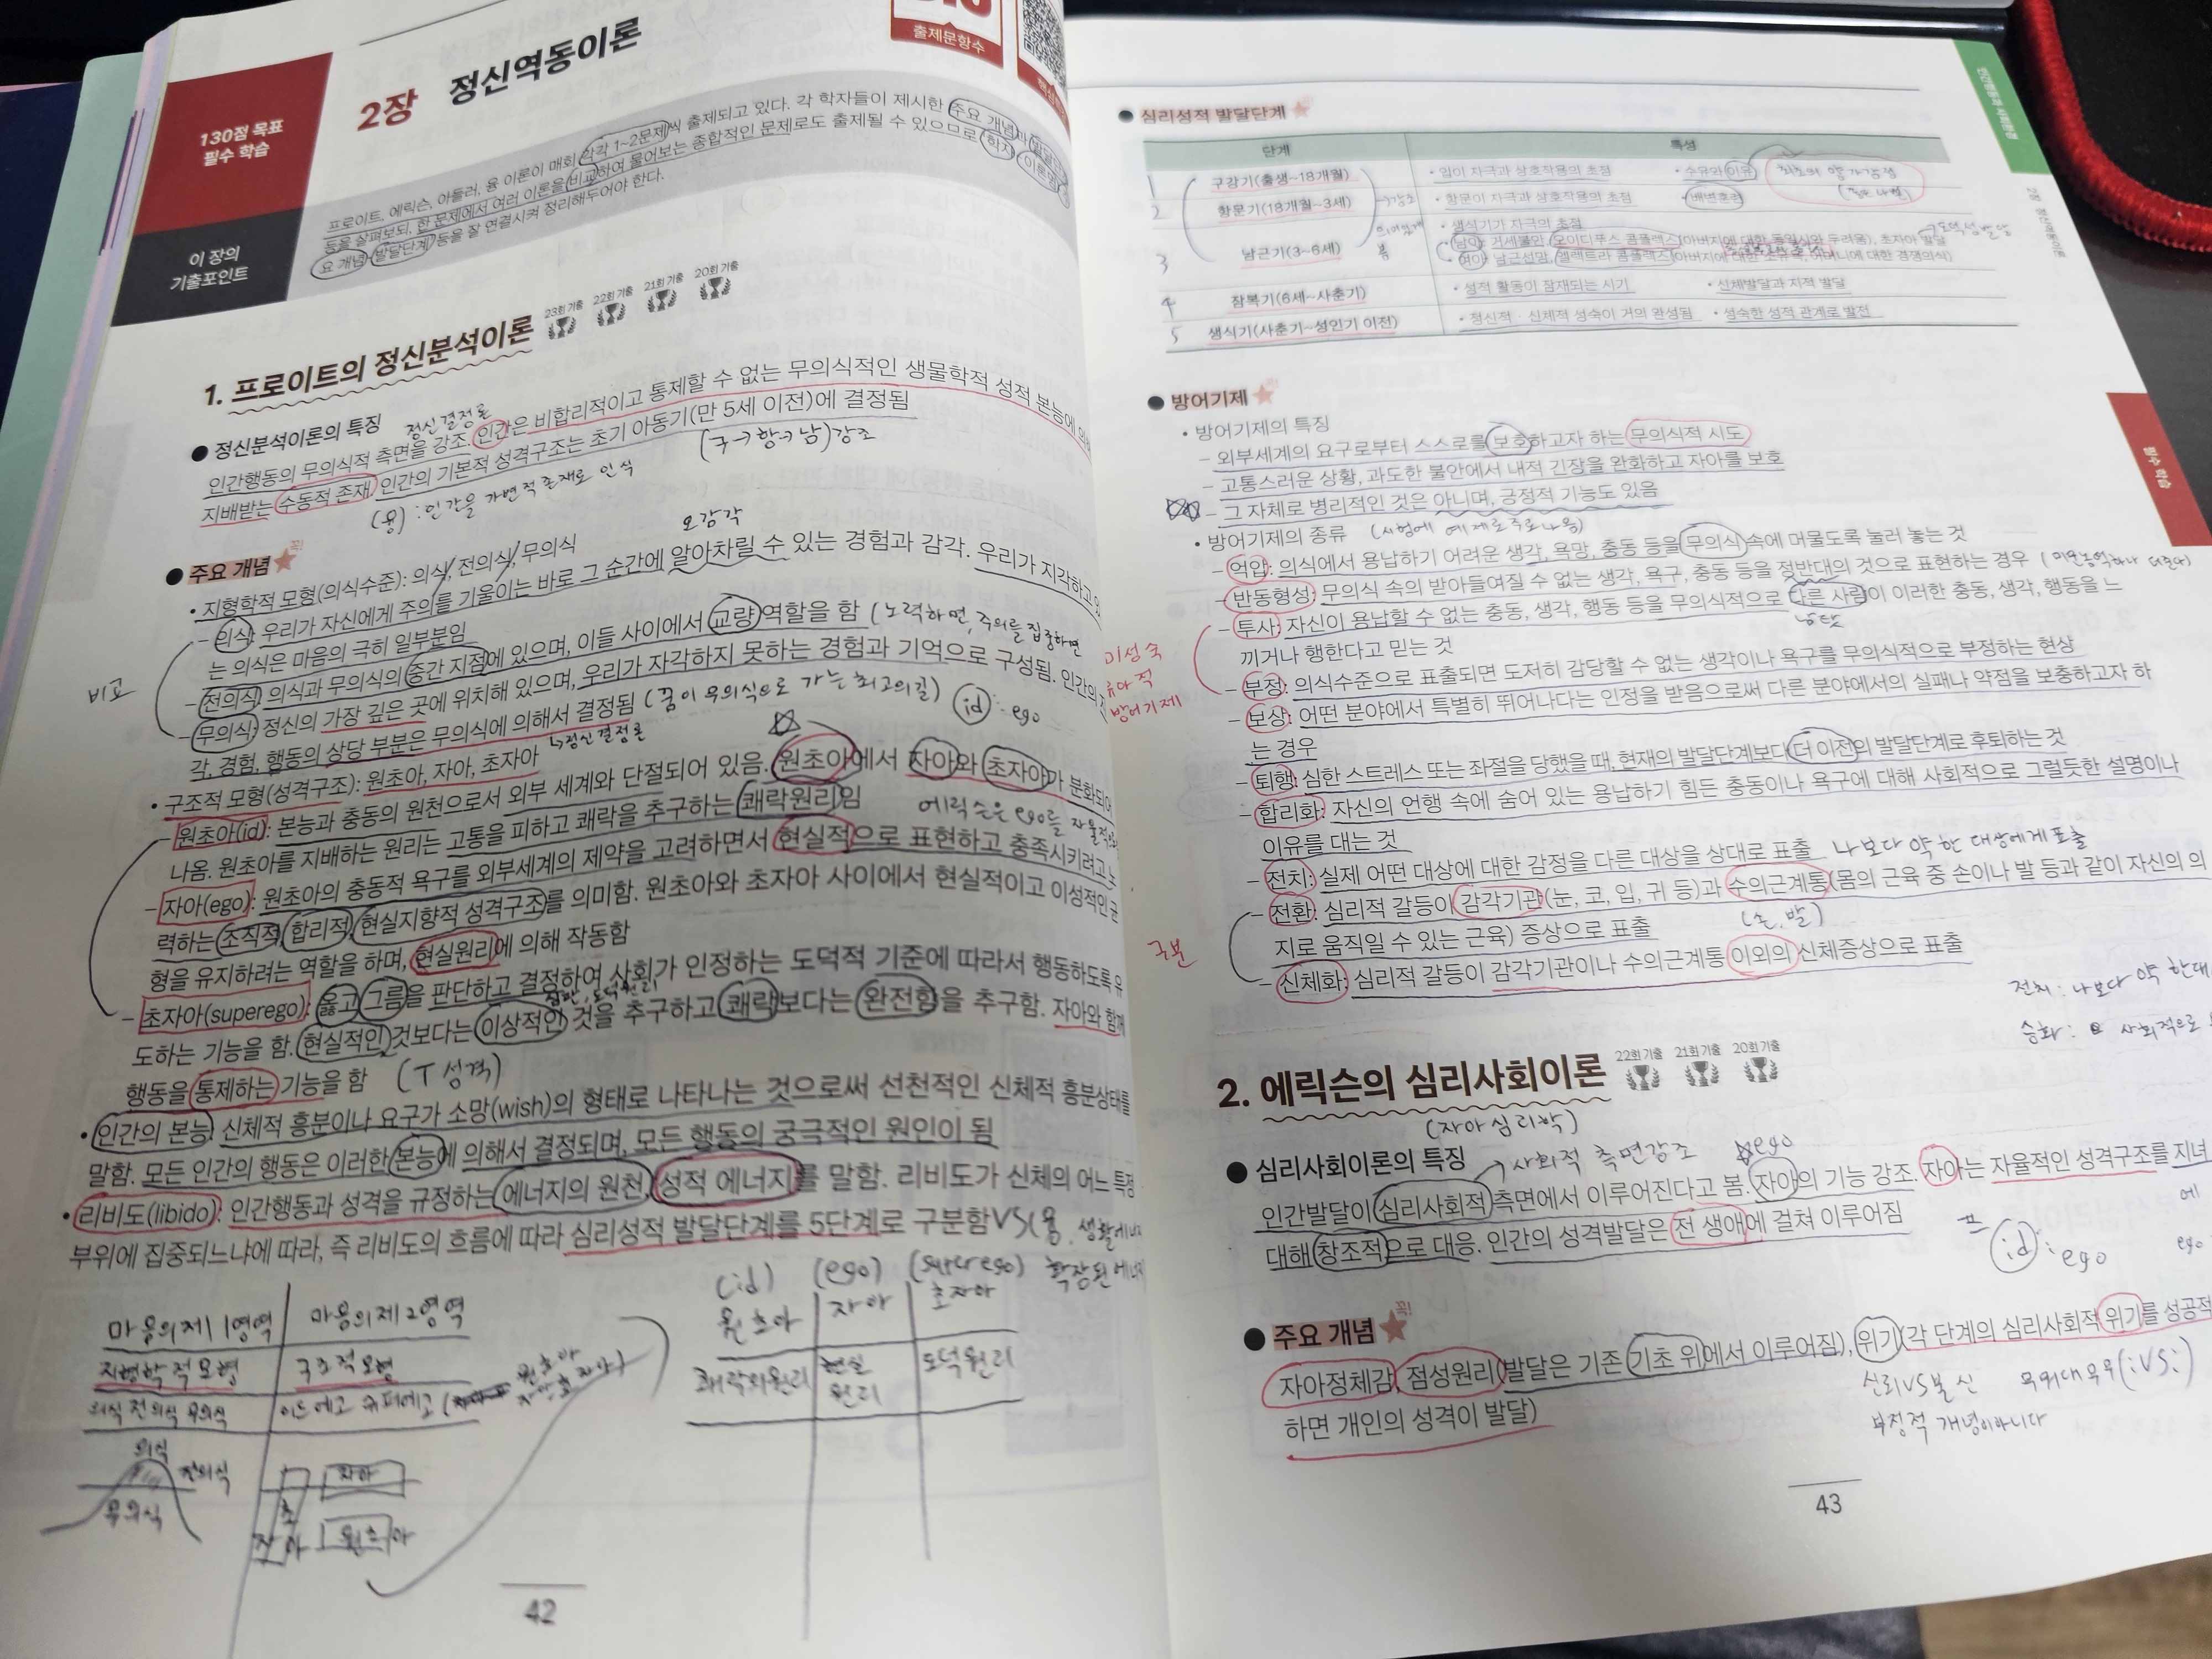 130점 목표
필수 학습
2장 정신역동이론
출제문항수
이 장의
기출포인트
프로이트, 에릭슨, 아들러, 융 이론이 매회 각각 1~2문제씩 출제되고 있다. 각 학자들이 제시한 주요 개념과
등을 살펴보되, 한 문제에서 여러 이론을 비교하여 물어보는 종합적인 문제로도 출제될 수 있으므로 학자, 이론명,
요 개념, 발달단계 등을 잘 연결시켜 정리해두어야 한다.
1. 프로이트의 정신분석이론
23회 기출 22회 기출 21회 기출 20회 기출
● 정신분석이론의 특징
정신결정론
인간행동의 무의식적 측면을 강조. 인간은 비합리적이고 통제할 수 없는 무의식적인 생물학적 성적 본능에 의해
지배받는 수동적 존재. 인간의 기본적 성격구조는 초기 아동기(만 5세 이전)에 결정됨
(구→항→남)강조
(융) : 인간을 가변적 존재로 인식
● 주요 개념 꼭!
• 지형학적 모형(의식수준): 의식, 전의식, 무의식
오감각
– 의식: 우리가 자신에게 주의를 기울이는 바로 그 순간에 알아차릴 수 있는 경험과 감각. 우리가 지각하고 있
는 의식은 마음의 극히 일부분임
– 전의식: 의식과 무의식의 중간 지점에 있으며, 이들 사이에서 교량 역할을 함 (노력하면, 주의를 집중하면
– 무의식: 정신의 가장 깊은 곳에 위치해 있으며, 우리가 자각하지 못하는 경험과 기억으로 구성됨. 인간의
각, 경험, 행동의 상당 부분은 무의식에 의해서 결정됨 (꿈이 무의식으로 가는 최고의길)
비교
↳정신결정론
id : ego
• 구조적 모형(성격구조): 원초아, 자아, 초자아
– 원초아(id): 본능과 충동의 원천으로서 외부 세계와 단절되어 있음. 원초아에서 자아와 초자아가 분화되어
나옴. 원초아를 지배하는 원리는 고통을 피하고 쾌락을 추구하는 쾌락원리임
에릭슨은 ego를
– 자아(ego): 원초아의 충동적 욕구를 외부세계의 제약을 고려하면서 현실적으로 표현하고 충족시키려고 노
력하는 조직적, 합리적, 현실지향적 성격구조를 의미함. 원초아와 초자아 사이에서 현실적이고 이성적인 균
형을 유지하려는 역할을 하며, 현실원리에 의해 작동함
– 초자아(superego): 옳고 그름을 판단하고 결정하여 사회가 인정하는 도덕적 기준에 따라서 행동하도록 유
도하는 기능을 함. 현실적인 것보다는 이상적인 것을 추구하고 쾌락보다는 완전함을 추구함. 자아와 함께
행동을 통제하는 기능을 함 (T 성격)
• 인간의 본능: 신체적 흥분이나 요구가 소망(wish)의 형태로 나타나는 것으로써 선천적인 신체적 흥분상태를
말함. 모든 인간의 행동은 이러한 본능에 의해서 결정되며, 모든 행동의 궁극적인 원인이 됨
• 리비도(libido): 인간행동과 성격을 규정하는 에너지의 원천, 성적 에너지를 말함. 리비도가 신체의 어느 특정
부위에 집중되느냐에 따라, 즉 리비도의 흐름에 따라 심리성적 발달단계를 5단계로 구분함 VS(융.
마음의제1영역 마음의제2영역
지형학적모형 구조적모형
의식 전의식 무의식 이드 에고 슈퍼에고
의식
전의식
무의식
자아
초
자아
원초아
(id) (ego) (superego)
원초아 자아 초자아
쾌락의원리 현실 도덕원리
원리
42
● 심리성적 발달단계
단계 특성
1 구강기(출생~18개월) • 입이 자극과 상호작용의 초점 • 수유와 이유
2 항문기(18개월~3세) • 항문이 자극과 상호작용의 초점 • 배변훈련
3 남근기(3~6세) • 생식기가 자극의 초점
남아: 거세불안, 오이디푸스 콤플렉스(아버지에 대한 동일시와 두려움), 초자아 발달
여아: 남근선망, 엘렉트라 콤플렉스(아버지에 대한 소유욕, 어머니에 대한 경쟁의식)
4 잠복기(6세~사춘기) • 성적 활동이 잠재되는 시기 • 신체발달과 지적 발달
5 생식기(사춘기~성인기 이전) • 정신적·신체적 성숙이 거의 완성됨 • 성숙한 성적 관계로 발전
● 방어기제
• 방어기제의 특징
– 외부세계의 요구로부터 스스로를 보호하고자 하는 무의식적 시도
– 고통스러운 상황, 과도한 불안에서 내적 긴장을 완화하고 자아를 보호
– 그 자체로 병리적인 것은 아니며, 긍정적 기능도 있음
• 방어기제의 종류 (시험에 예제로주로나옴)
– 억압: 의식에서 용납하기 어려운 생각, 욕망, 충동 등을 무의식 속에 머물도록 눌러 놓는 것
– 반동형성: 무의식 속의 받아들여질 수 없는 생각, 욕구, 충동 등을 정반대의 것으로 표현하는 경우
– 투사: 자신이 용납할 수 없는 충동, 생각, 행동 등을 무의식적으로 다른 사람이 이러한 충동, 생각, 행동을 느
끼거나 행한다고 믿는 것
남탓
– 부정: 의식수준으로 표출되면 도저히 감당할 수 없는 생각이나 욕구를 무의식적으로 부정하는 현상
미성숙
방어기제
– 보상: 어떤 분야에서 특별히 뛰어나다는 인정을 받음으로써 다른 분야에서의 실패나 약점을 보충하고자 하
는 경우
– 퇴행: 심한 스트레스 또는 좌절을 당했을 때, 현재의 발달단계보다 더 이전의 발달단계로 후퇴하는 것
– 합리화: 자신의 언행 속에 숨어 있는 용납하기 힘든 충동이나 욕구에 대해 사회적으로 그럴듯한 설명이나
이유를 대는 것
– 전치: 실제 어떤 대상에 대한 감정을 다른 대상을 상대로 표출 나보다 약한 대상에게 표출
– 전환: 심리적 갈등이 감각기관(눈, 코, 입, 귀 등)과 수의근계통(몸의 근육 중 손이나 발 등과 같이 자신의 의
지로 움직일 수 있는 근육) 증상으로 표출 (손, 발)
구분
– 신체화: 심리적 갈등이 감각기관이나 수의근계통 이외의 신체증상으로 표출
전치 : 나보다 약한대
승화 : 사회적으로
2. 에릭슨의 심리사회이론
22회 기출 21회 기출 20회 기출
(자아심리학)
● 심리사회이론의 특징 → 사회적 측면강조 ego
인간발달이 심리사회적 측면에서 이루어진다고 봄. 자아의 기능 강조. 자아는 자율적인 성격구조를 지녀
대해 창조적으로 대응. 인간의 성격발달은 전 생애에 걸쳐 이루어짐
프 id : ego
에 ego
● 주요 개념 꼭!
자아정체감, 점성원리(발달은 기존 기초 위에서 이루어짐), 위기(각 단계의 심리사회적 위기를 성공적
하면 개인의 성격이 발달)
신뢰VS불신
부정적 개념이아니다
43
필수 학습